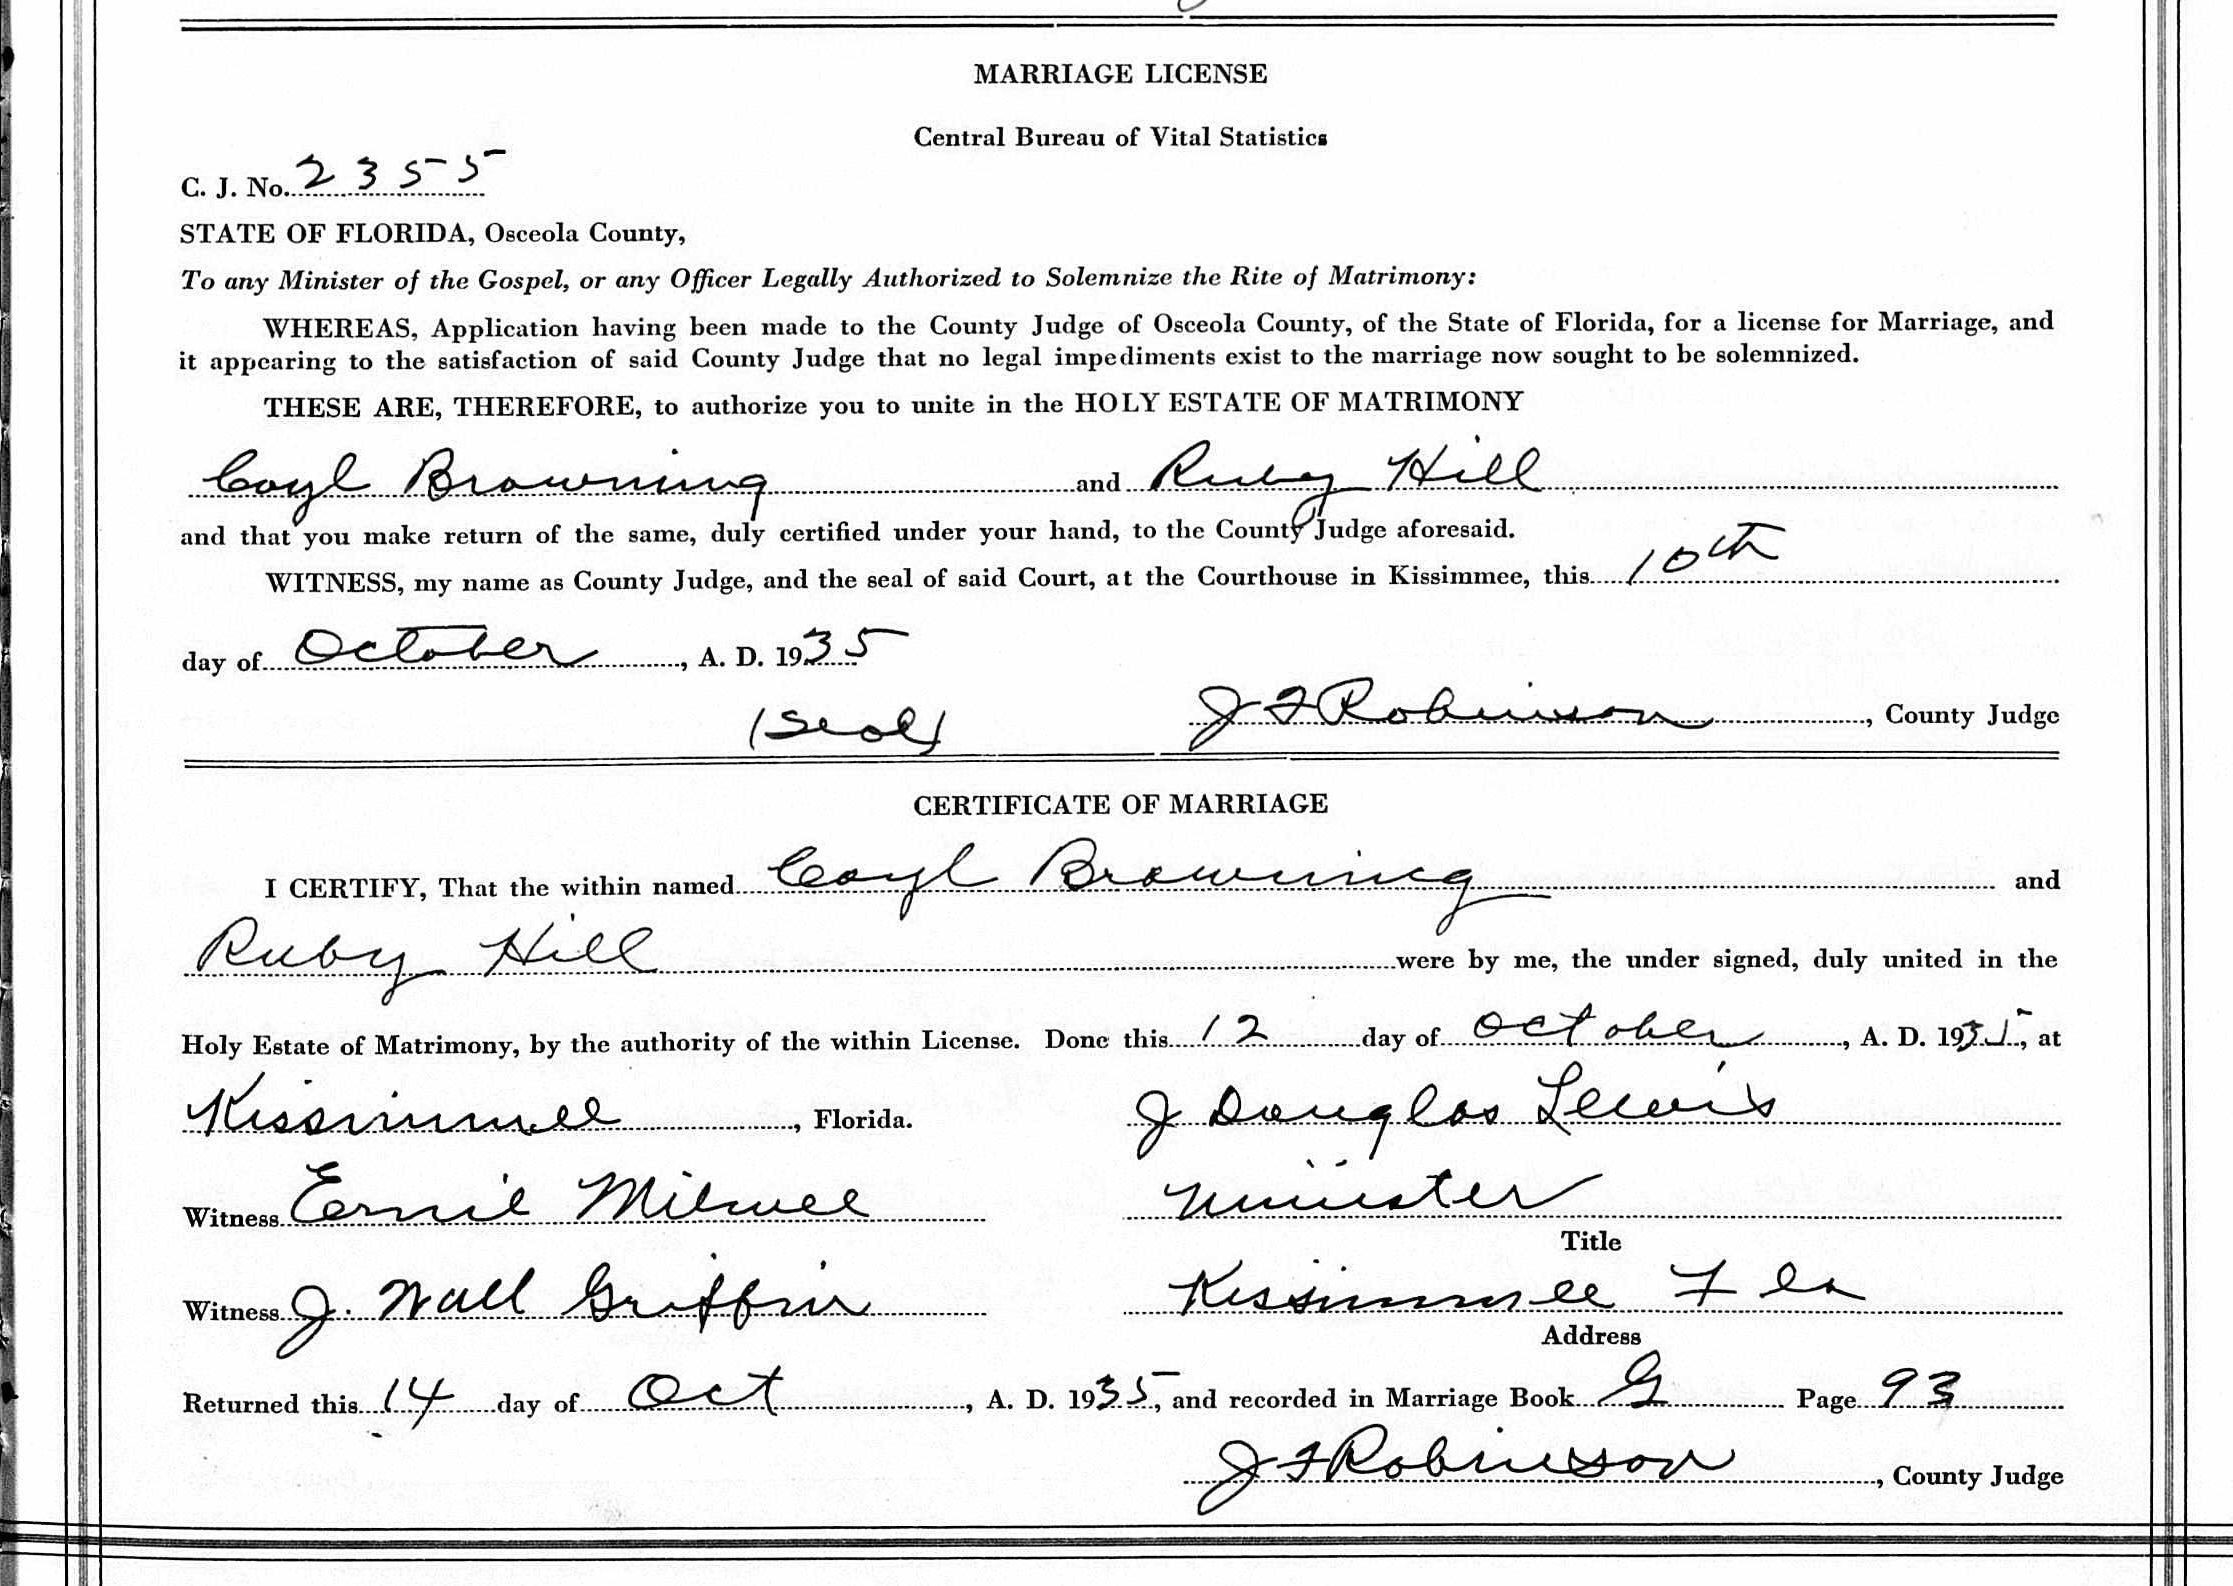 MARRIAGE LICENSE
Central Bureau of Vital Statistics
C. J. No. 2355
STATE OF FLORIDA, Osceola County,
To any Minister of the Gospel, or any Officer Legally Authorized to Solemnize the Rite of Matrimony:
WHEREAS, Application having been made to the County Judge of Osceola County, of the State of Florida, for a license for Marriage, and
it appearing to the satisfaction of said County Judge that no legal impediments exist to the marriage now sought to be solemnized.
THESE ARE, THEREFORE, to authorize you to unite in the HOLY ESTATE OF MATRIMONY
Coyl Browning and Ruby Hill
and that you make return of the same, duly certified under your hand, to the County Judge aforesaid.
WITNESS, my name as County Judge, and the seal of said Court, at the Courthouse in Kissimmee, this 10th
day of October, A. D. 1935
(Seal) J F Robinson, County Judge
CERTIFICATE OF MARRIAGE
I CERTIFY, That the within named Coyl Browning and
Ruby Hill were by me, the under signed, duly united in the
Holy Estate of Matrimony, by the authority of the within License. Done this 12 day of October, A. D. 1935, at
Kissimmee, Florida. J Douglas Lewis
Witness Ernie Milwee Minister
Title
Witness J. Wall Griffin Kissimmee Fla
Address
Returned this 14 day of Oct, A. D. 1935, and recorded in Marriage Book G Page 93
J F Robinson, County Judge